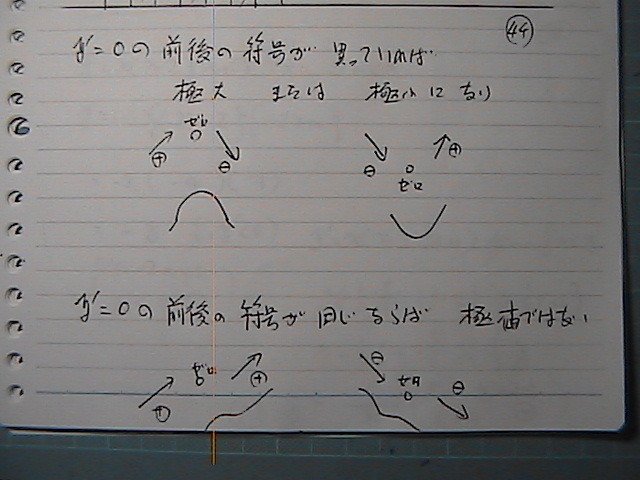 44
y'=0の前後の符号が異っていれば
極大 または 極小になり
ゼロ
0
⊕ ⊖
⊖ ⊕
0
ゼロ
y'=0の前後の符号が同じならば 極値ではない
ゼロ
0
⊕ ⊕
⊖
ゼロ
0
⊖